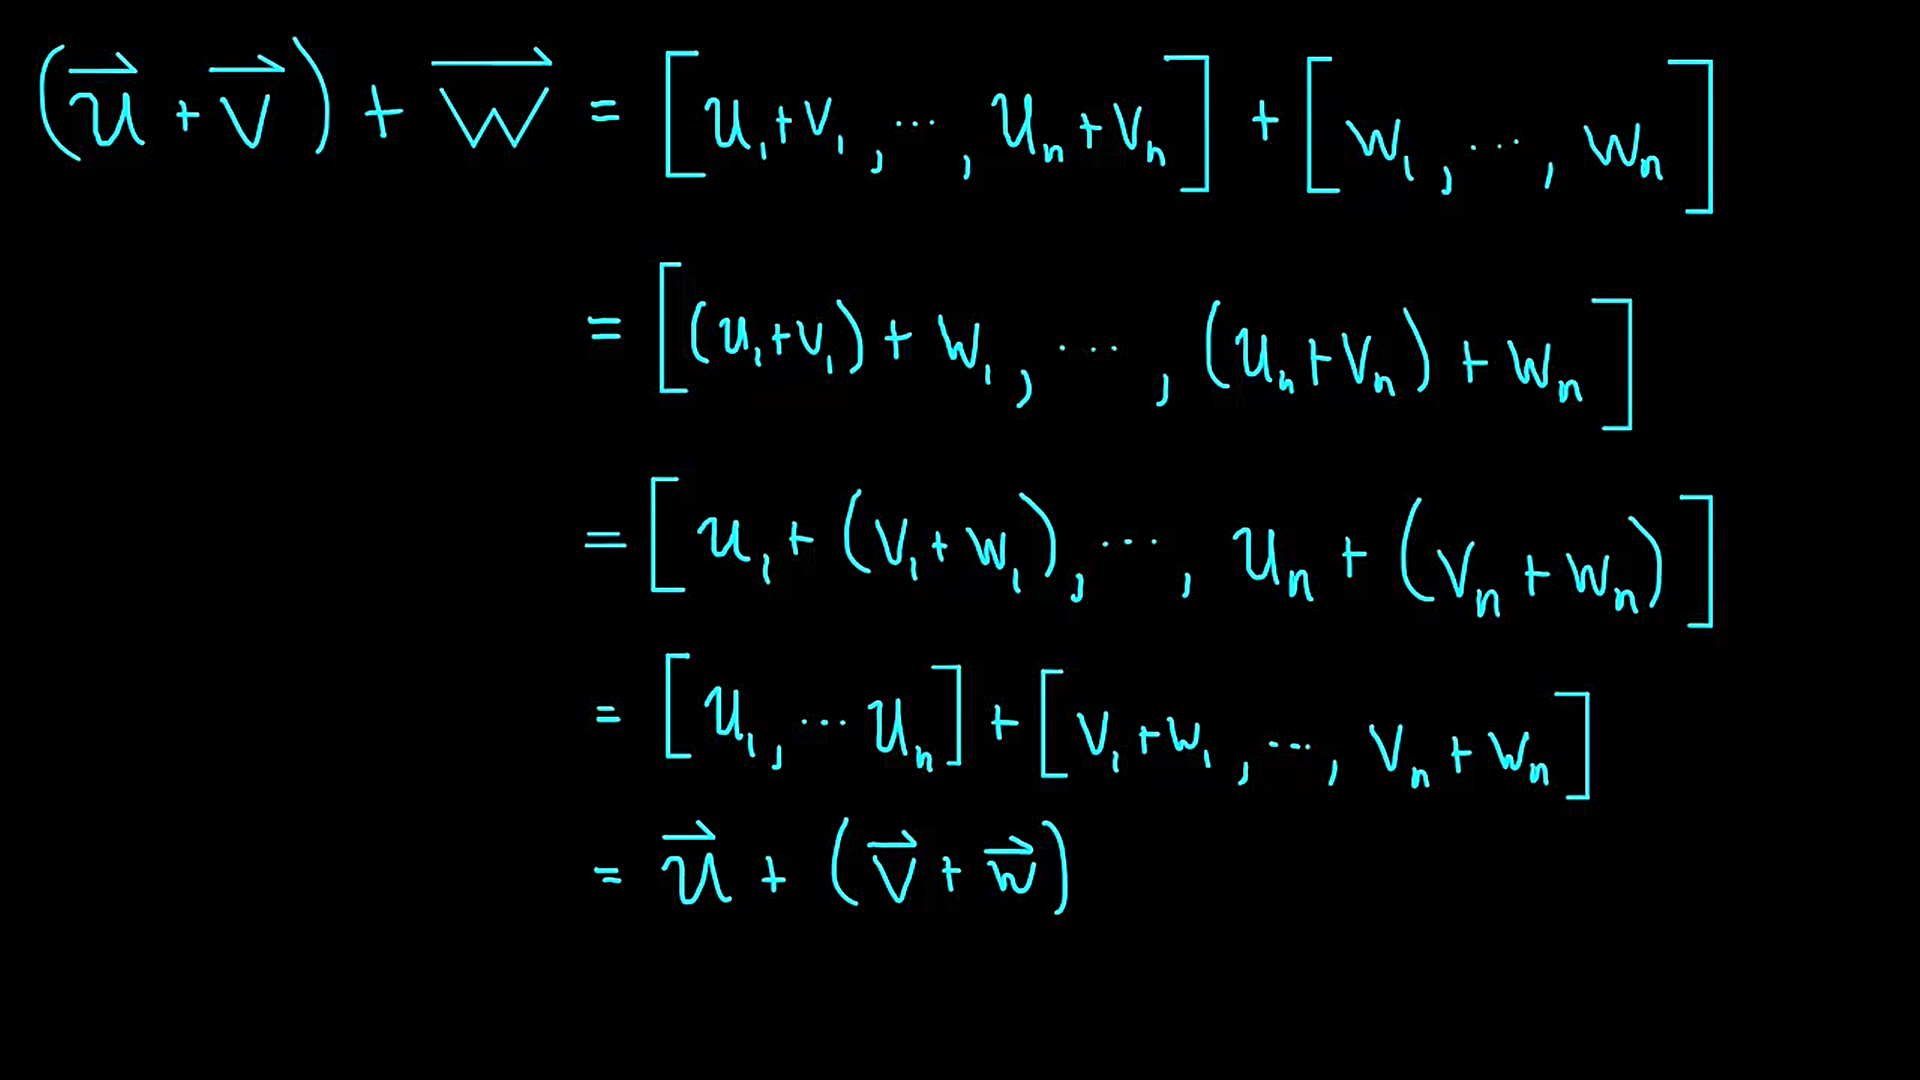 (u⃗ + v⃗) + w⃗ = [u₁+v₁, ⋯, uₙ+vₙ] + [w₁, ⋯, wₙ]
= [(u₁+v₁) + w₁, ⋯, (uₙ+vₙ) + wₙ]
= [u₁ + (v₁+w₁), ⋯, uₙ + (vₙ+wₙ)]
= [u₁, ⋯ uₙ] + [v₁+w₁, ⋯, vₙ+wₙ]
= u⃗ + (v⃗ + w⃗)